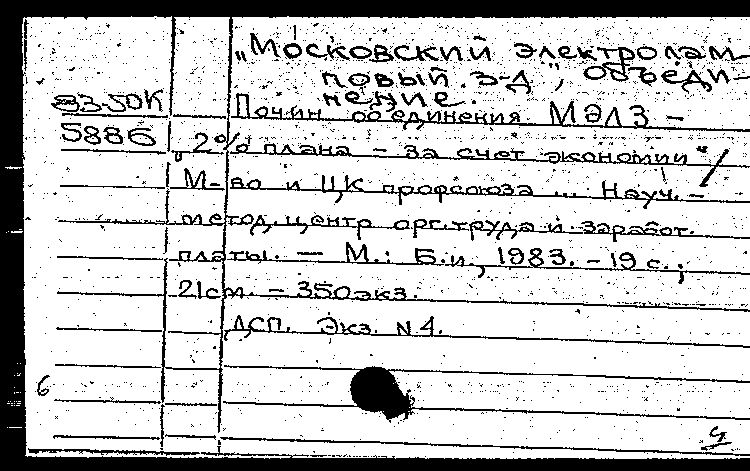 „Московский электролам-
повый з-д", объеди-
нение.
83-50К
Почин объединения МЭЛЗ –
5886
„2% плана – за счет экономии" /
М-во и ЦК профсоюза ... Науч.-
метод. центр орг. труда и заработ.
платы. – М.: Б.и., 1983. – 19 с.;
21 см. – 350 экз.
ДСП. Экз. N 4.
6